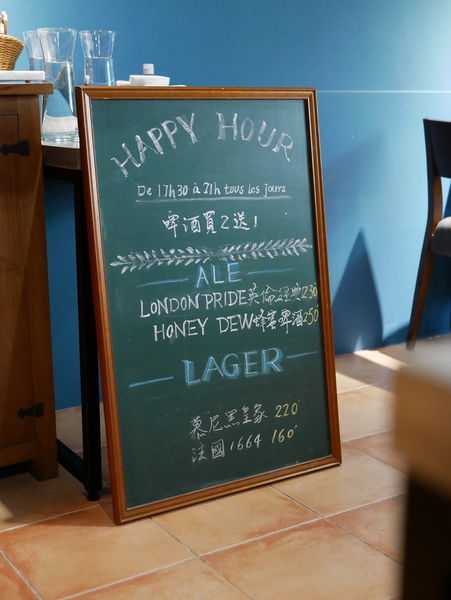 HAPPY HOUR
De 17h30 à 21h tous les jours
啤酒買2送1
ALE
LONDON PRIDE英倫經典230
HONEY DEW蜂蜜啤酒250
LAGER
慕尼黑皇家 220
法國1664 160